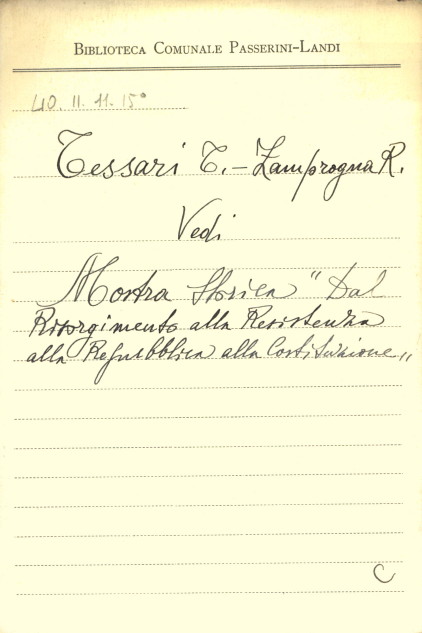 BIBLIOTECA COMUNALE PASSERINI-LANDI
40. II. 11. 15°
Tessari T. - Zamprogna R.
Vedi
Mostra Storica "Dal
Risorgimento alla Resistenza
alla Repubblica alla Costituzione"
C